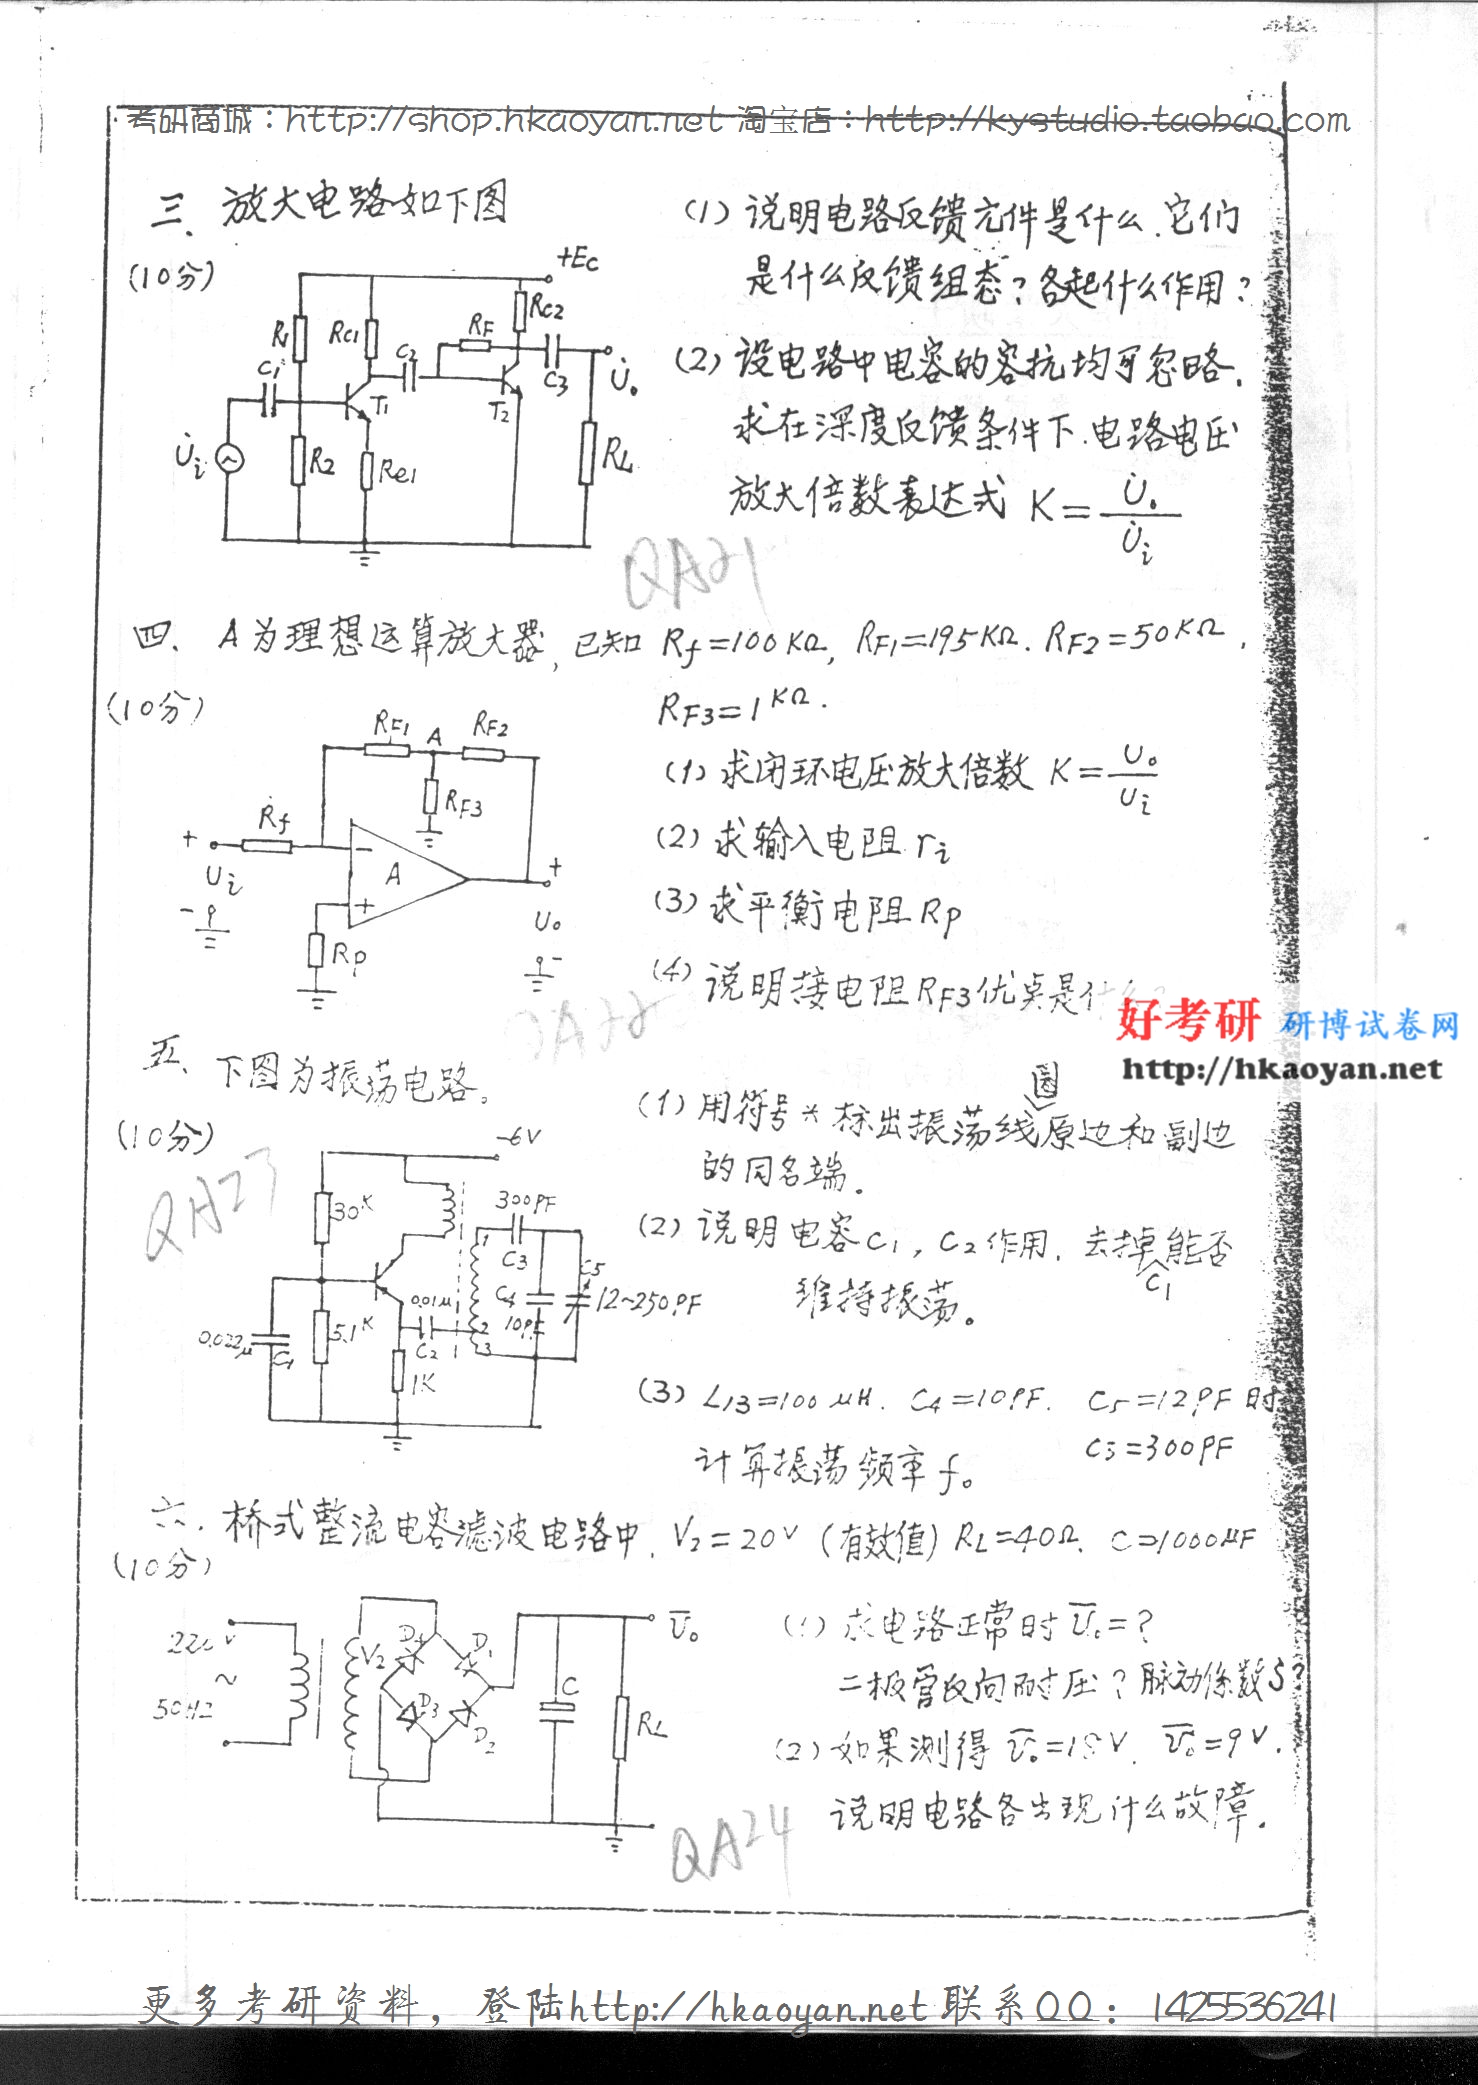 考研商城：http://shop.hkaoyan.net 淘宝店：http://kystudio.taobao.com
三、放大电路如下图
(10分)
+Ec
R1
Rc1
RF
Rc2
C1
C2
C3
T1
T2
U̇o
U̇i
R2
Re1
RL
(1) 说明电路反馈元件是什么.它们
是什么反馈组态?各起什么作用?
(2) 设电路中电容的容抗均可忽略.
求在深度反馈条件下.电路电压
放大倍数表达式 K=U̇o/U̇i
QA21
四、A为理想运算放大器,已知 Rf=100KΩ, RF1=195KΩ. RF2=50KΩ,
(10分)
RF3=1KΩ.
RF1
A
RF2
RF3
Rf
+
Ui
-
-
A
+
+
Uo
-
Rp
(1) 求闭环电压放大倍数 K=Uo/Ui
(2) 求输入电阻 ri
(3) 求平衡电阻 Rp
(4) 说明接电阻RF3优点是什么?
QA22
好考研 研博试卷网
http://hkaoyan.net
五、下图为振荡电路。
(10分)
QA23
-6V
30K
300PF
1
C3
C5
C4
12~250PF
10PF
0.01μ
C2
2
3
0.022μ
C1
5.1K
1K
(1) 用符号*标出振荡线圈原边和副边
的同名端.
(2) 说明电容C1, C2作用. 去掉C1能否
维持振荡。
(3) L13=100μH. C4=10PF. C5=12PF时
C3=300PF
计算振荡频率fo
六. 桥式整流电容滤波电路中. V2=20V (有效值) RL=40Ω. C=1000μF
(10分)
220V
~
50HZ
V2
D4
D1
D3
D2
C
RL
U̅o
(1) 求电路正常时U̅o=?
二极管反向耐压?脉动係数S?
(2) 如果测得 U̅o=18V. U̅o=9V.
说明电路各出现什么故障.
QA24
更多考研资料，登陆http://hkaoyan.net 联系QQ：1425536241